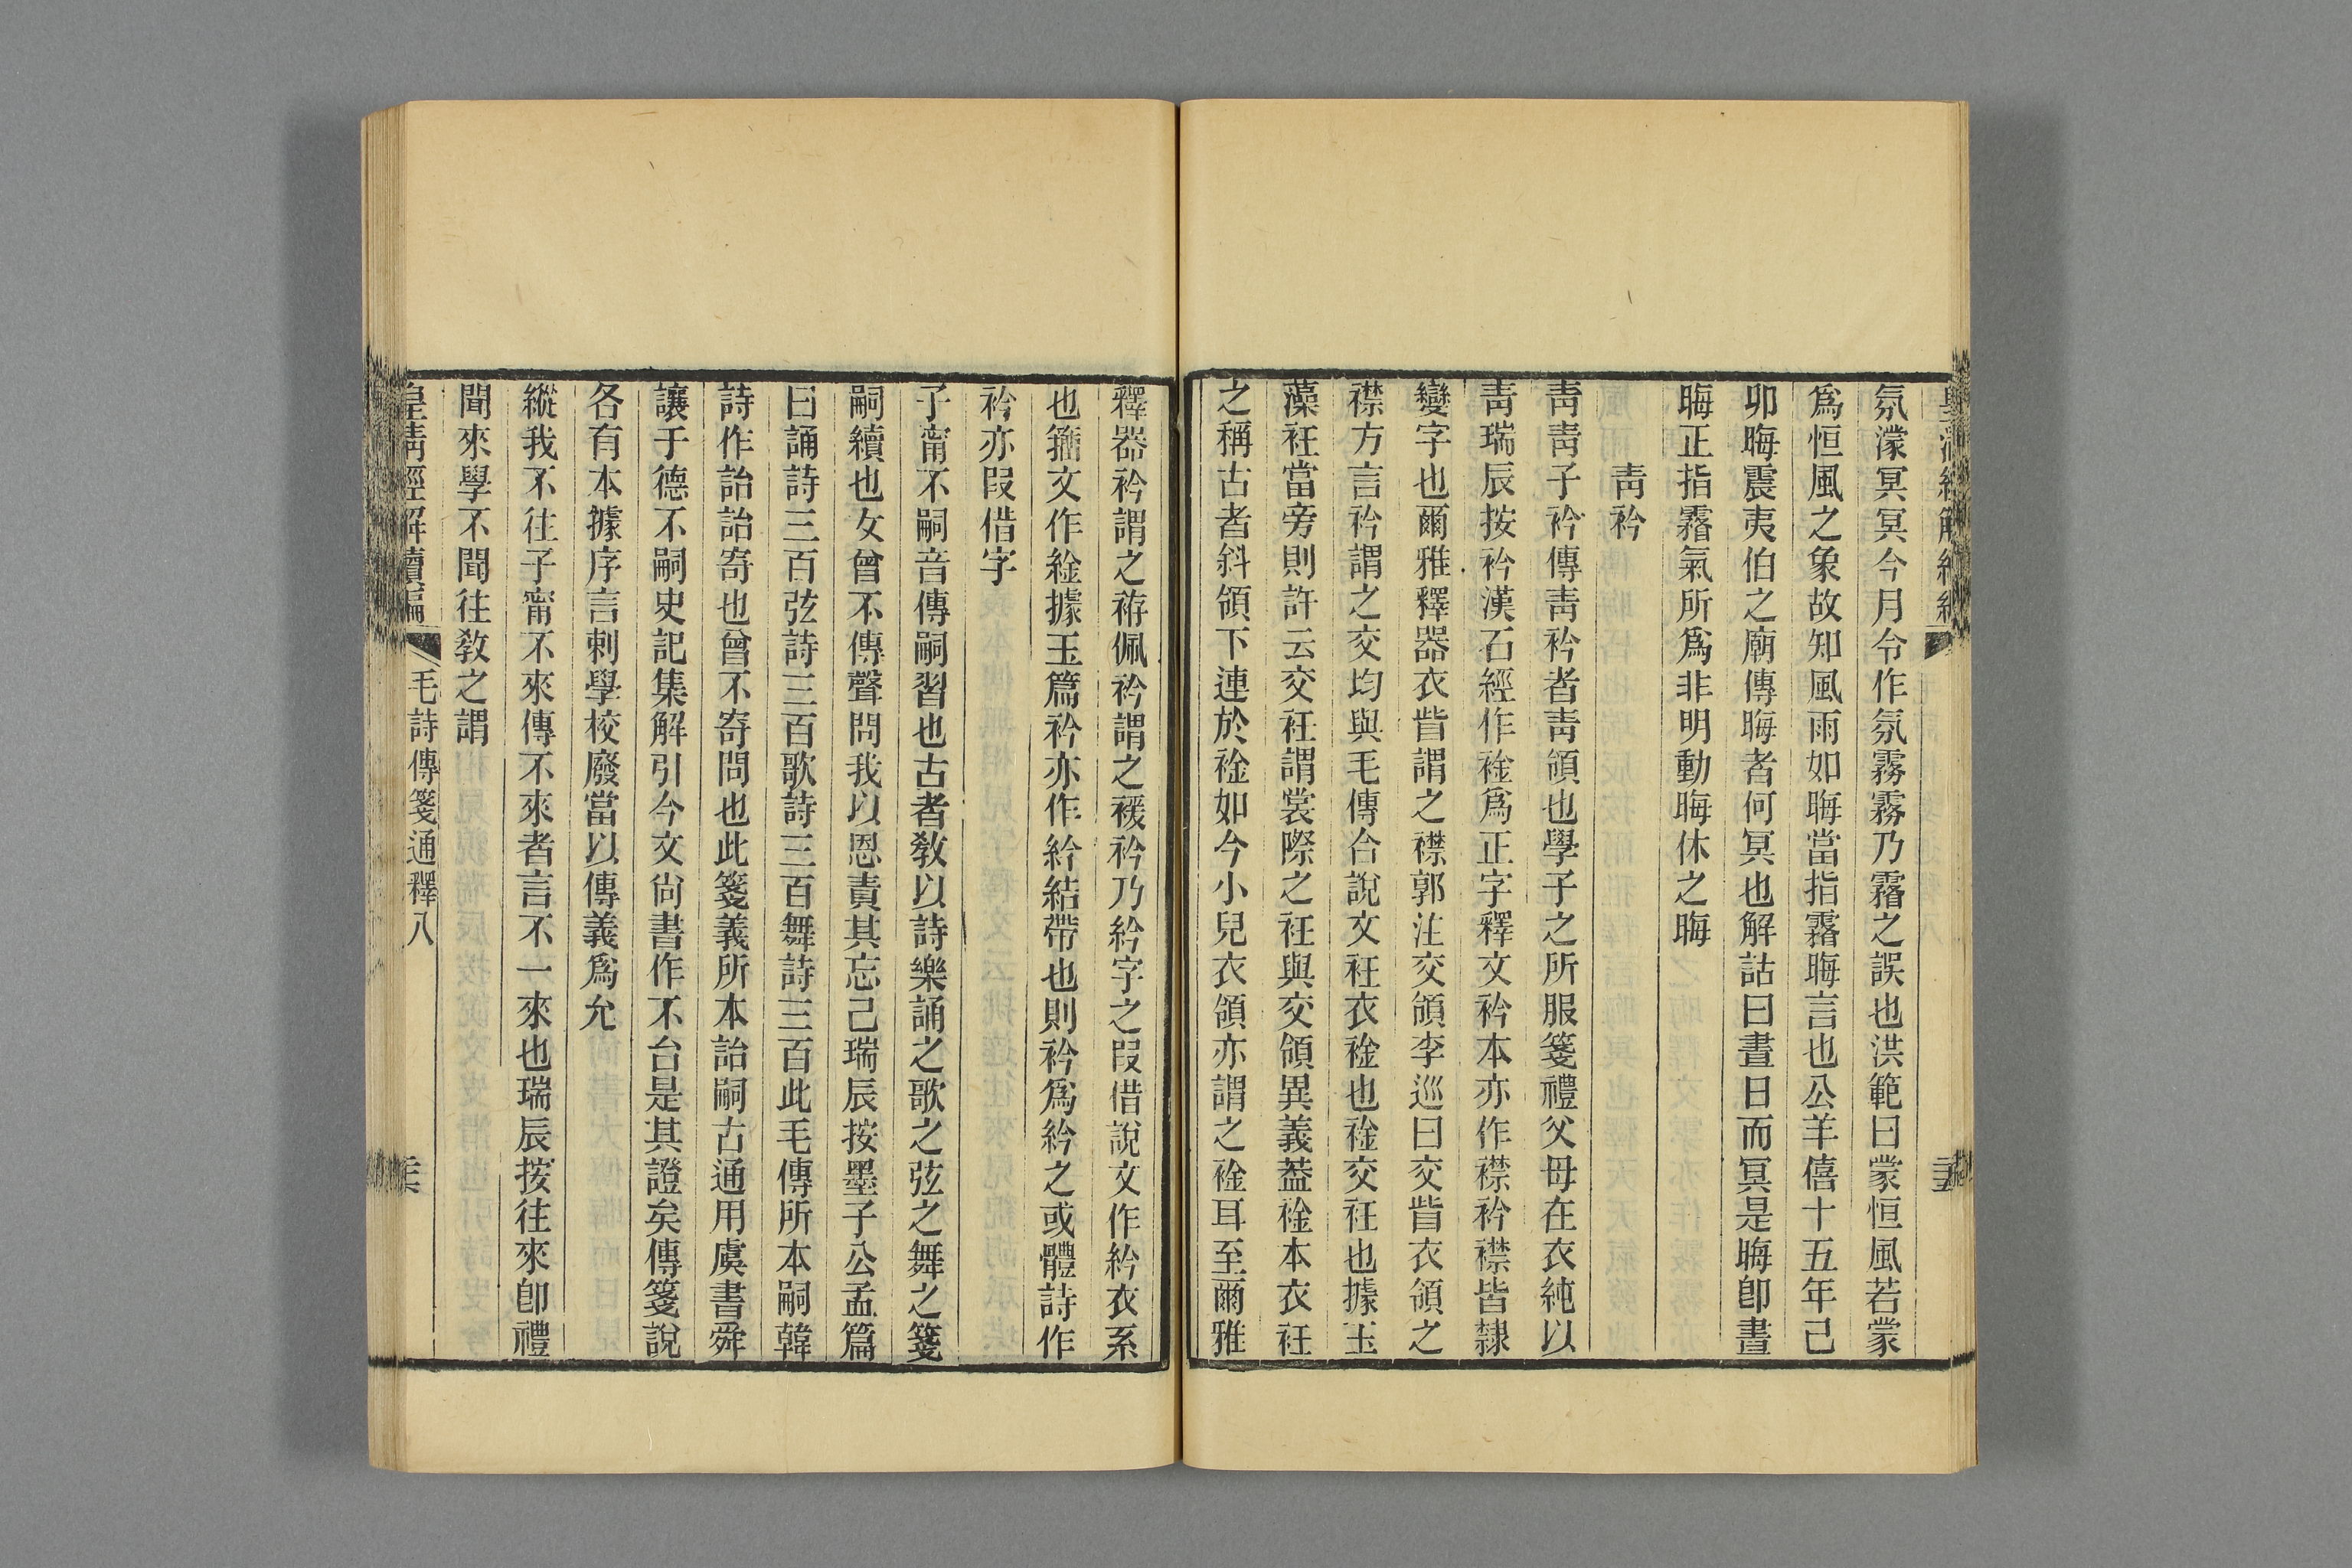 氛濛冥冥今月令作氛霧霧乃霿之誤也洪範曰蒙恒風若蒙
爲恒風之象故知風雨如晦當指霿晦言也公羊僖十五年己
卯晦震夷伯之廟傳晦者何冥也解詁曰晝日而冥是晦卽晝
晦正指霿氣所爲非明動晦休之晦
靑衿
靑靑子衿傳靑衿者靑領也學子之所服箋禮父母在衣純以
靑瑞辰按衿漢石經作裣爲正字釋文衿本亦作襟衿襟皆隸
變字也爾雅釋器衣眥謂之襟郭注交領李巡曰交眥衣領之
襟方言衿謂之交均與毛傳合說文衽衣裣也裣交衽也據玉
藻衽當旁則許云交衽謂裳際之衽與交領異義葢裣本衣衽
之稱古者斜領下連於裣如今小兒衣領亦謂之裣耳至爾雅
釋器衿謂之袸佩衿謂之褑衿乃紟字之叚借說文作紟衣系
也籀文作䋮據玉篇衿亦作紟結帶也則衿爲紟之或體詩作
衿亦叚借字
子甯不嗣音傳嗣習也古者敎以詩樂誦之歌之弦之舞之箋
嗣續也女曾不傳聲問我以恩責其忘己瑞辰按墨子公孟篇
曰誦詩三百弦詩三百歌詩三百舞詩三百此毛傳所本嗣韓
詩作詒詒寄也曾不寄問也此箋義所本詒嗣古通用虞書舜
讓于德不嗣史記集解引今文尙書作不台是其證矣傳箋說
各有本據序言刺學校廢當以傳義爲允
縱我不往子甯不來傳不來者言不一來也瑞辰按往來卽禮
聞來學不聞往敎之謂
皇淸經解續編
毛詩傳箋通釋八